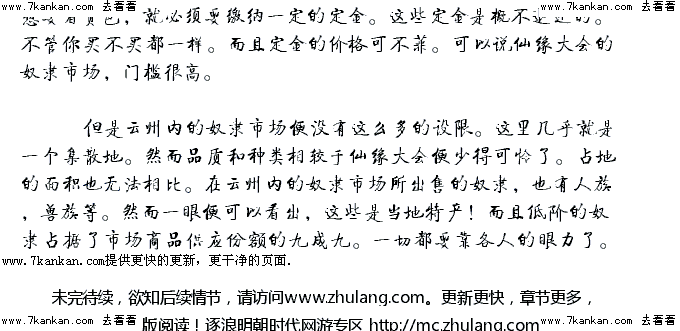 www.7kankan.com 去看看 www.7kankan.com 去看看 www.7kankan.com 去看看
就必须要缴纳一定的定金。这些定金是概不退还的。
不管你买不买都一样。而且定金的价格可不菲。可以说仙缘大会的
奴隶市场，门槛很高。
但是云州内的奴隶市场便没有这么多的设限。这里几乎就是
一个集散地。然而品质和种类相较于仙缘大会便少得可怜了。占地
的面积也无法相比。在云州内的奴隶市场所出售的奴隶，也有人族
，兽族等。然而一眼便可以看出，这些是当地特产！而且低阶的奴
隶占据了市场商品供应份额的九成九。一切都要靠各人的眼力了。
www.7kankan.com提供更快的更新，更干净的页面.
未完待续，欲知后续情节，请访问www.zhulang.com。更新更快，章节更多，
www.7kankan.com 去看看 www.7kankan.com 去看看 www.7kankan.com 去看看
版阅读！逐浪明朝时代网游专区 http://mc.zhulang.com